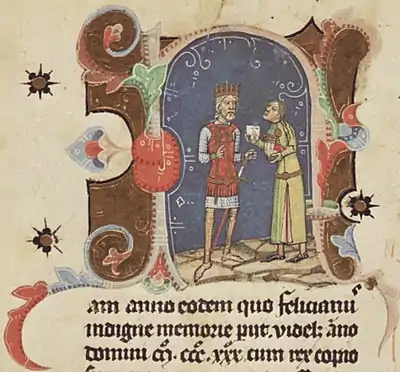 Nam anno eodem quo felicianu᷒
indigne memorie piit. videlꝫ ãno
domini m̃. ccc̃. xxx. cum rex copio